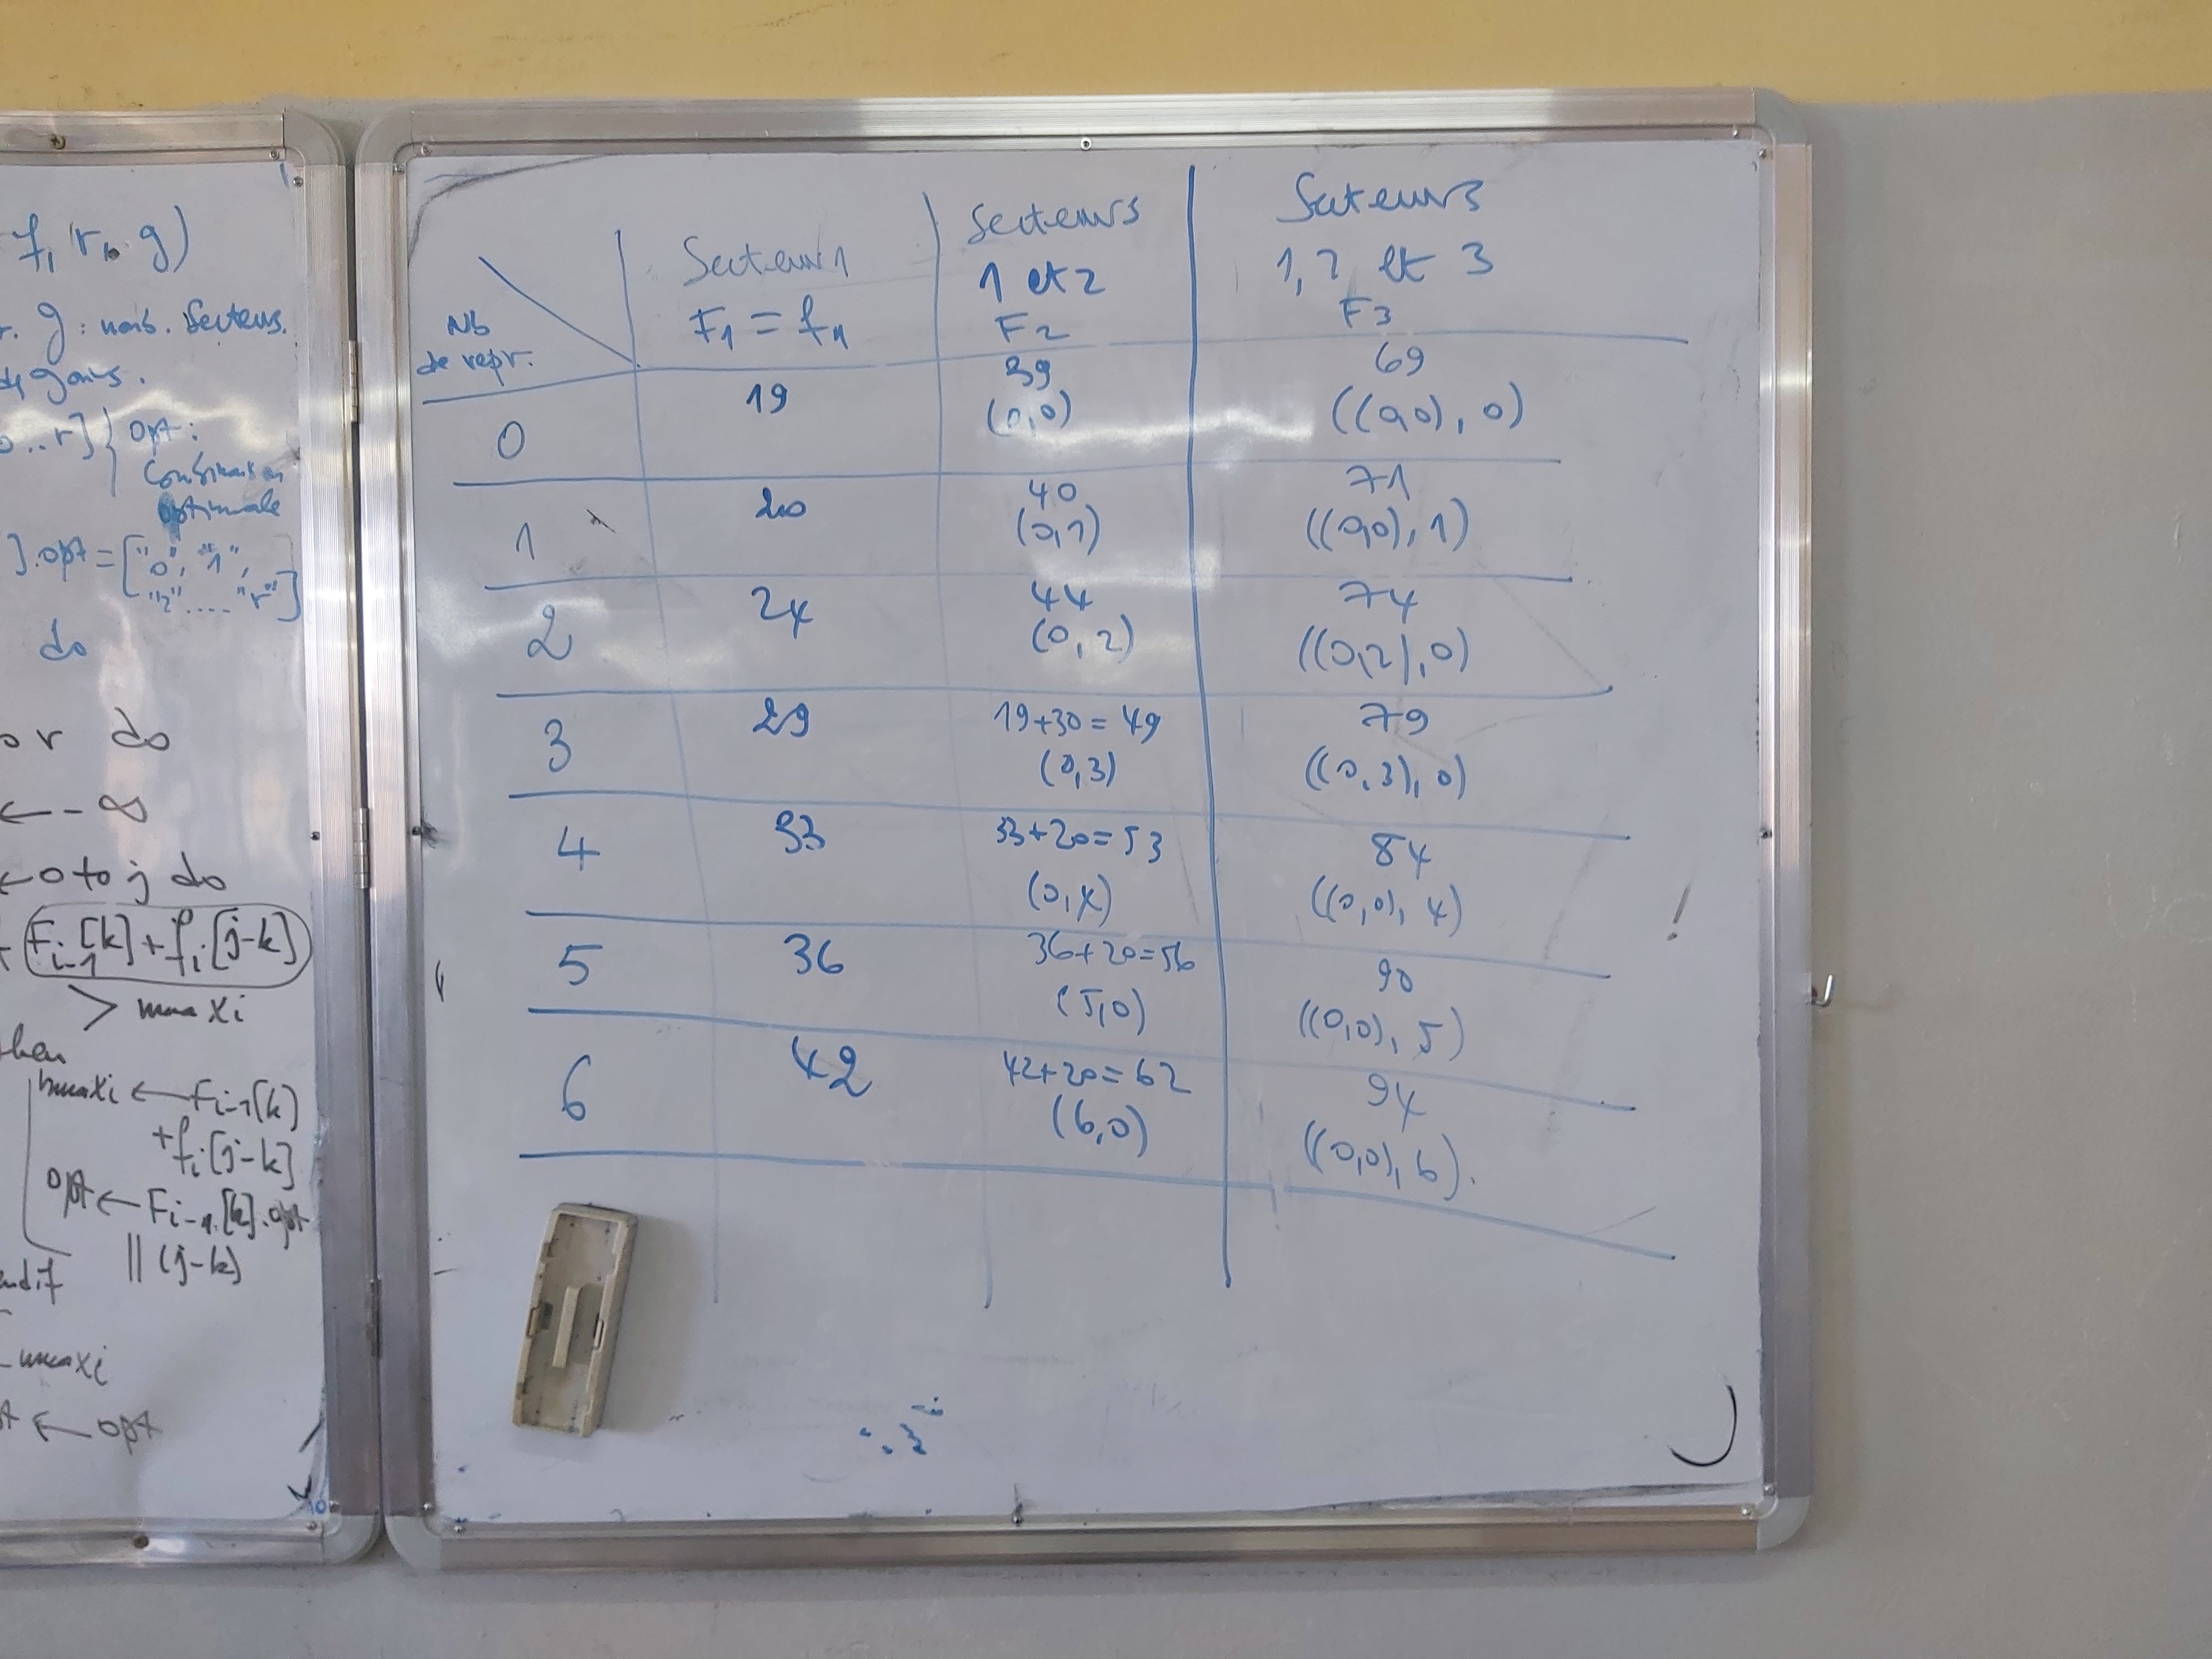 f₁, r, g)
r. g : nomb. Secteurs.
gains.
0..r] { opt :
Combinaison
optimale
].opt = ["0", "1",
"2" .... "r"]
do
r do
← -∞
← 0 to j do
Fi-1[k] + fi[j-k]
> maxi
then
maxi ← Fi-1[k]
+ fi[j-k]
opt ← Fi-1[k].opt
|| (j-k)
endif
maxi
← opt
Nb
de repr.
Secteur 1
F1 = f1
Secteurs
1 et 2
F2
Secteurs
1, 2 et 3
F3
0
19
39
(0,0)
69
((0,0), 0)
1
20
40
(0,1)
71
((0,0), 1)
2
24
44
(0, 2)
74
((0,2), 0)
3
29
19+30 = 49
(0,3)
79
((0, 3), 0)
4
33
33+20=53
(0,4)
84
((0,0), 4)
5
36
36+20=56
(5,0)
90
((0,0), 5)
6
42
42+20=62
(6,0)
94
((0,0), 6).